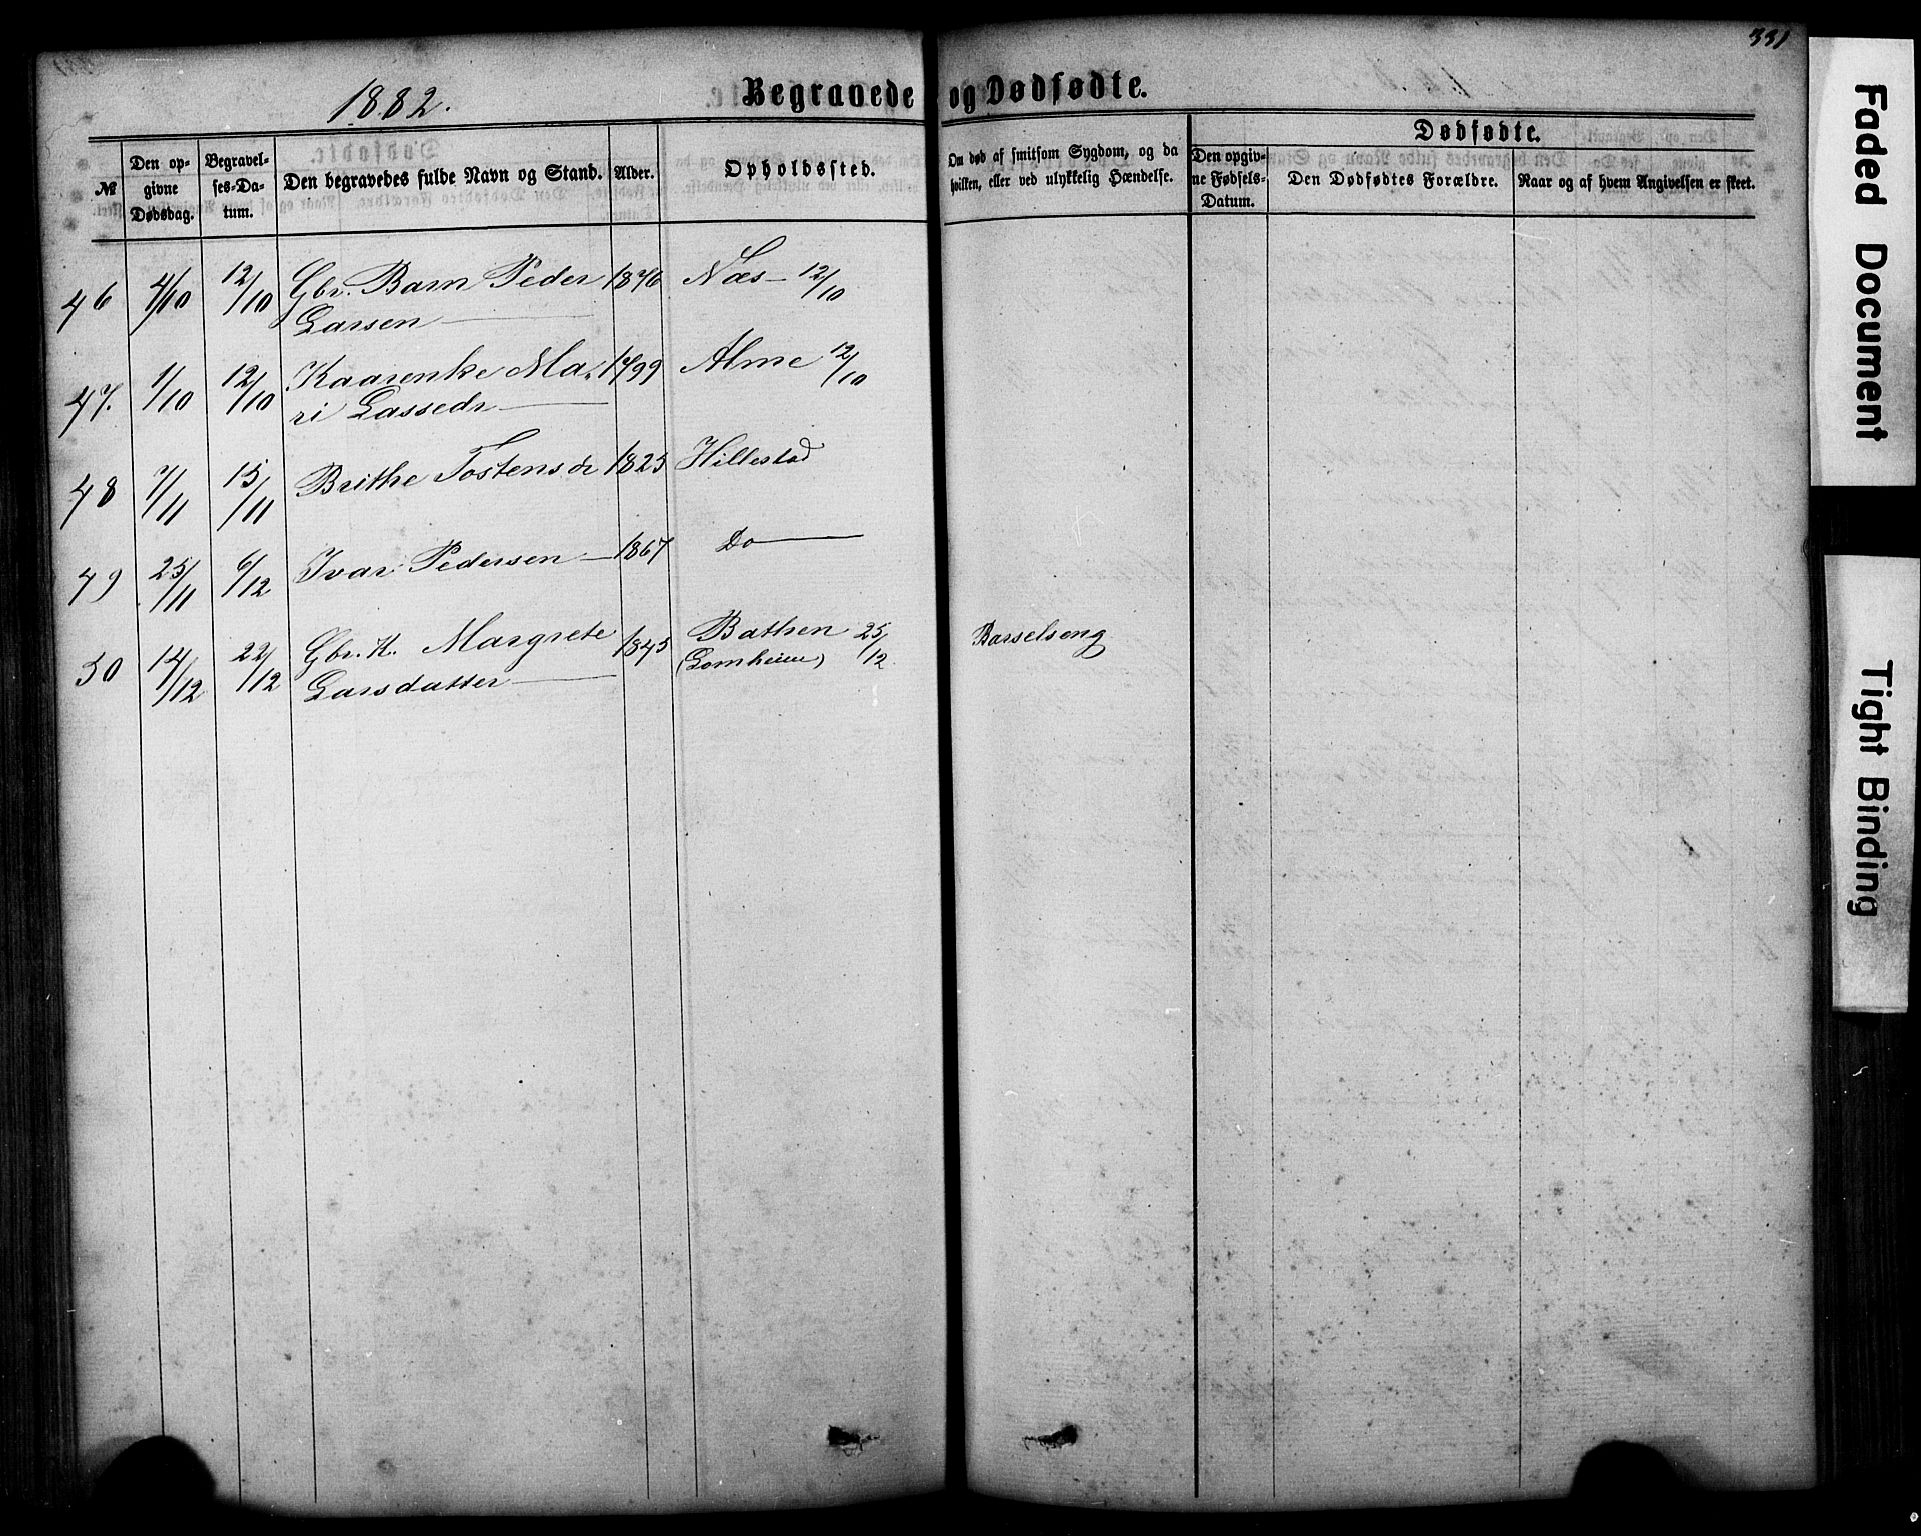 331
1882.
Begravede og Dødfødte.
№
Den op-
givne
Dødsdag.
Begravel-
ses-Da-
tum.
Den begravedes fulde Navn og Stand.
Alder.
Opholdssted.
Om død af smitsom Sygdom, og da
hvilken, eller ved ulykkelig Hændelse.
Dødfødte.
Den opgiv-
ne Fødsels-
Datum.
Den Dødfødtes Forældre.
Naar og af hvem Angivelsen er skeet.
46 4/10 12/10 Gbr. Barn Peder 1876 Næs - 12/10
Larsen
47. 1/10 12/10 Kaarenke Ma- 1799 Alme 12/10
ri Lassedr
48 7/11 15/11 Brithe Tostensdr 1825 Hillestad
49 25/11 6/12 Ivar Pedersen 1867 Do
50 14/12 22/12 Gbr. K. Margrete 1845 Bathen 25/12 Barselseng
Larsdatter (Lomheim)
Faded Document
Tight Binding